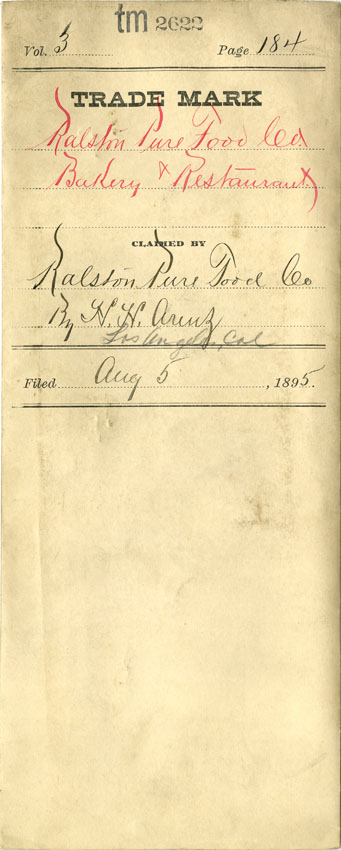 tm 2622
Vol. 3 Page 184
TRADE MARK
Ralston Pure Food Co
Bakery & Restaurant
CLAIMED BY
Ralston Pure Food Co
By H. H. Arenz
Los Angeles, Cal
Filed Aug 5, 1895.